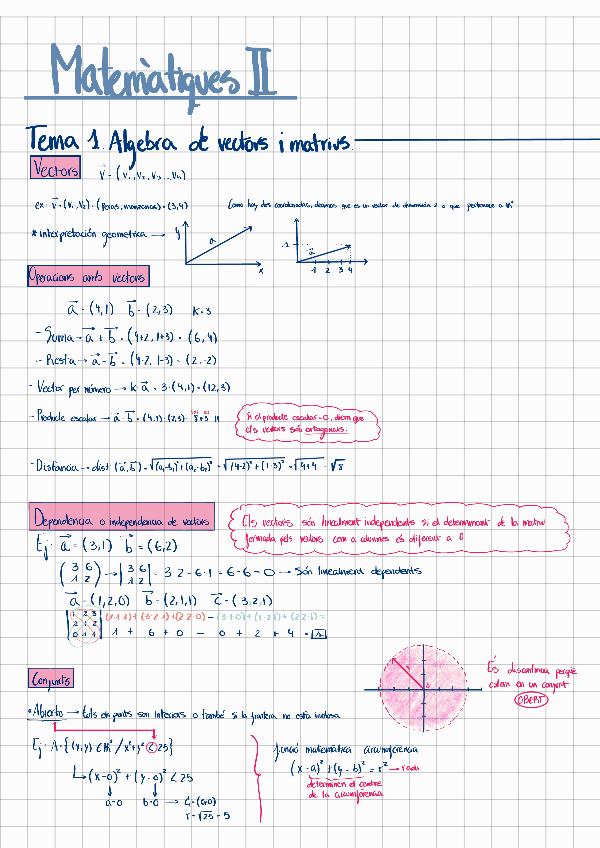 Matemàtiques II
Tema 1. Algebra de vectors i matrius.
Vectors
v⃗ = (v₁, v₂, v₃ ... vₙ)
ex: v⃗ = (v₁, v₂) = (Peras, manzanas) = (3,4)
Como hay dos coordenadas, decimos que es un vector de dimensión 2 o que pertenece a ℝ²
* interpretación geometrica → y a x
1 a⃗ 1 2 3 4
Operacions amb vectors
a⃗ = (4,1) b⃗ = (2,3) k=3
- Suma → a⃗ + b⃗ = (4+2, 1+3) = (6,4)
- Resta → a⃗ - b⃗ = (4-2, 1-3) = (2,-2)
- Vector per número → k·a⃗ = 3·(4,1) = (12,3)
- Producte escalar → a⃗ · b⃗ = (4,1)·(2,3) = 8+3 = 11
Si el producte escalar=0, diem que
els vectors són ortogonals.
- Distància → dist (a⃗,b⃗) = √(a₁-b₁)²+(a₂-b₂)² = √(4-2)²+(1-3)² = √4+4 = √8
Dependència o independencia de vectors
Els vectors són linealment independents si el determinant de la matriu
formada pels vectors com a columnes és diferent a 0
Ej: a⃗ = (3,1) b⃗ = (6,2)
(3 6
1 2) → |3 6
1 2| = 3·2 - 6·1 = 6-6 = 0 → Són linealment dependents
a⃗ = (1,2,0) b⃗ = (2,1,1) c⃗ = (3,2,1)
1 2 3
2 1 2
0 1 1
(1·1·1)+(3·2·1)+(2·2·0) - (3·1·0)+(1·2·1)+(2·2·1) =
1 + 6 + 0 - 0 + 2 + 4 = 1
Conjunts
És discontinua perquè
estem en un conjunt
OBERT
• Abierto → tots els punts son interiors o també si la frontera no està inclosa
Ej: A = {(x,y) ∈ ℝ² / x²+y² < 25}
→ (x-0)² + (y-0)² < 25
a=0 b=0 → C=(0,0)
r=√25 = 5
funció matemàtica circumferència
(x-a)² + (y-b)² = r² → radi
determinen el centre
de la circumferència